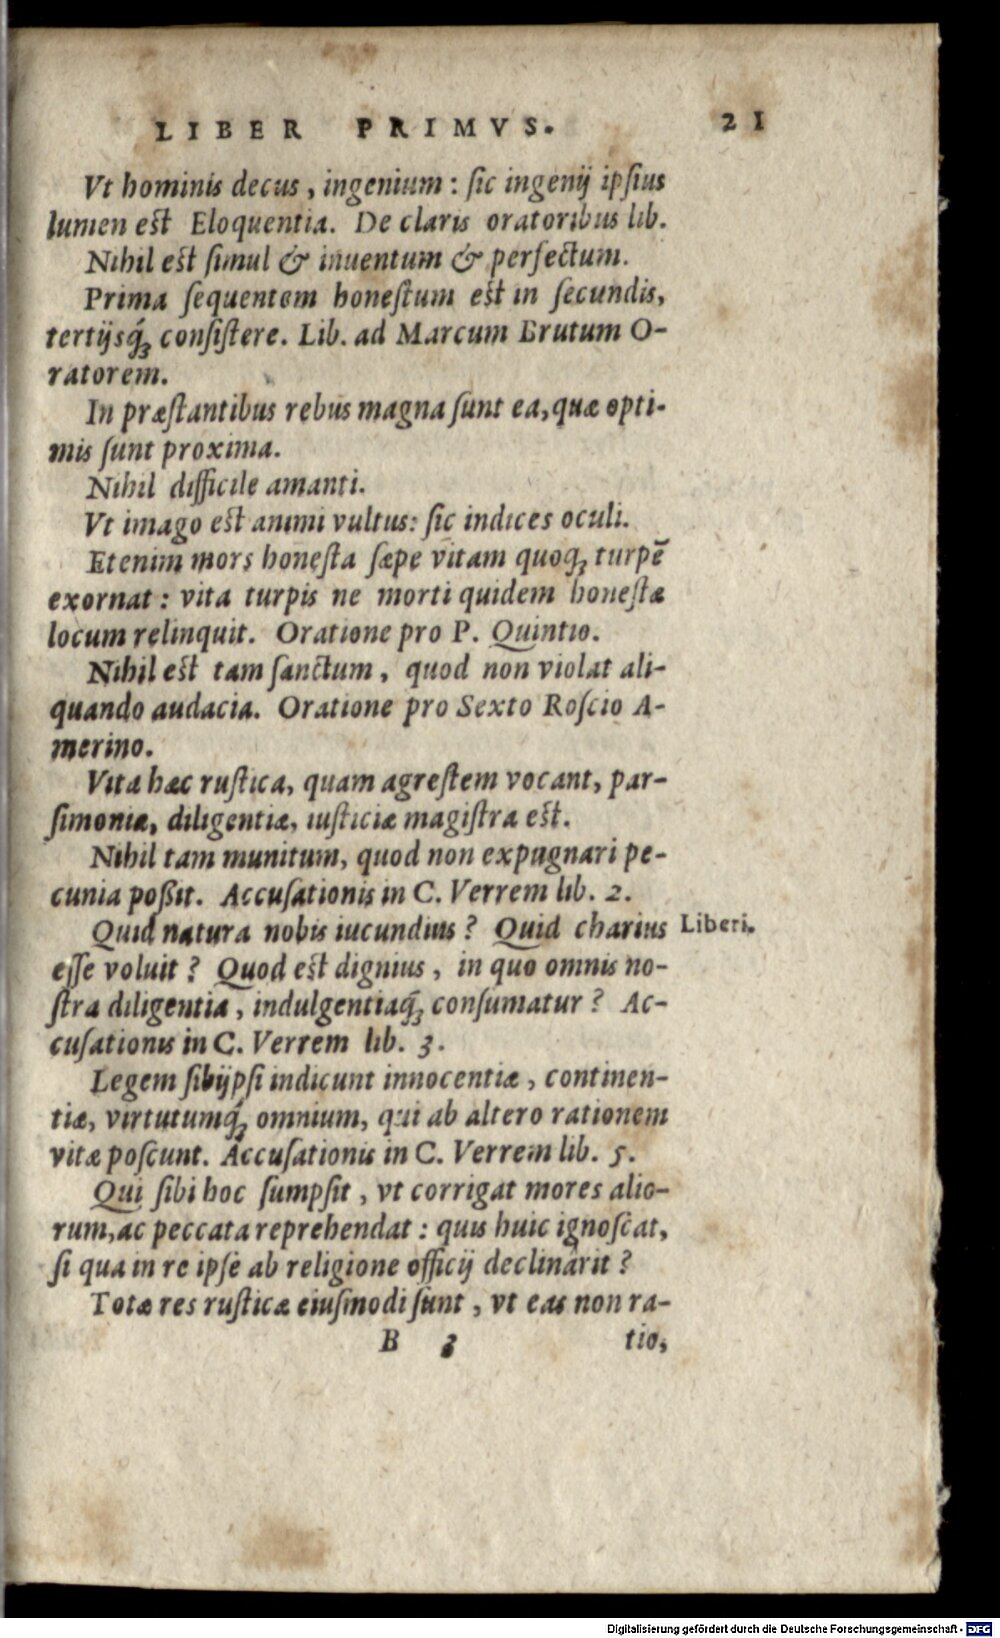 LIBER PRIMVS. 21
Vt hominis decus, ingenium: sic ingenij ipsius
lumen est Eloquentia. De claris oratoribus lib.
Nihil est simul & inuentum & perfectum.
Prima sequentem honestum est in secundis,
tertijsq́ꝫ consistere. Lib. ad Marcum Brutum O-
ratorem.
In præstantibus rebus magna sunt ea, quæ opti-
mis sunt proxima.
Nihil difficile amanti.
Vt imago est animi vultus: sic indices oculi.
Etenim mors honesta sæpe vitam quoqꝫ turpẽ
exornat: vita turpis ne morti quidem honestæ
locum relinquit. Oratione pro P. Quintio.
Nihil est tam sanctum, quod non violat ali-
quando audacia. Oratione pro Sexto Roscio A-
merino.
Vita hæc rustica, quam agrestem vocant, par-
simoniæ, diligentiæ, iusticiæ magistra est.
Nihil tam munitum, quod non expugnari pe-
cunia poßit. Accusationis in C. Verrem lib. 2.
Quid natura nobis iucundius? Quid charius Liberi.
esse voluit? Quod est dignius, in quo omnis no-
stra diligentia, indulgentiaq́ꝫ consumatur? Ac-
cusationis in C. Verrem lib. 3.
Legem sibijpsi indicunt innocentiæ, continen-
tiæ, virtutumq́ꝫ omnium, qui ab altero rationem
vitæ poscunt. Accusationis in C. Verrem lib. 5.
Qui sibi hoc sumpsit, vt corrigat mores alio-
rum, ac peccata reprehendat: quis huic ignoscat,
si qua in re ipse ab religione officij declinârit?
Totæ res rusticæ eiusmodi sunt, vt eas non ra-
B 3 tio,
Digitalisierung gefördert durch die Deutsche Forschungsgemeinschaft - DFG